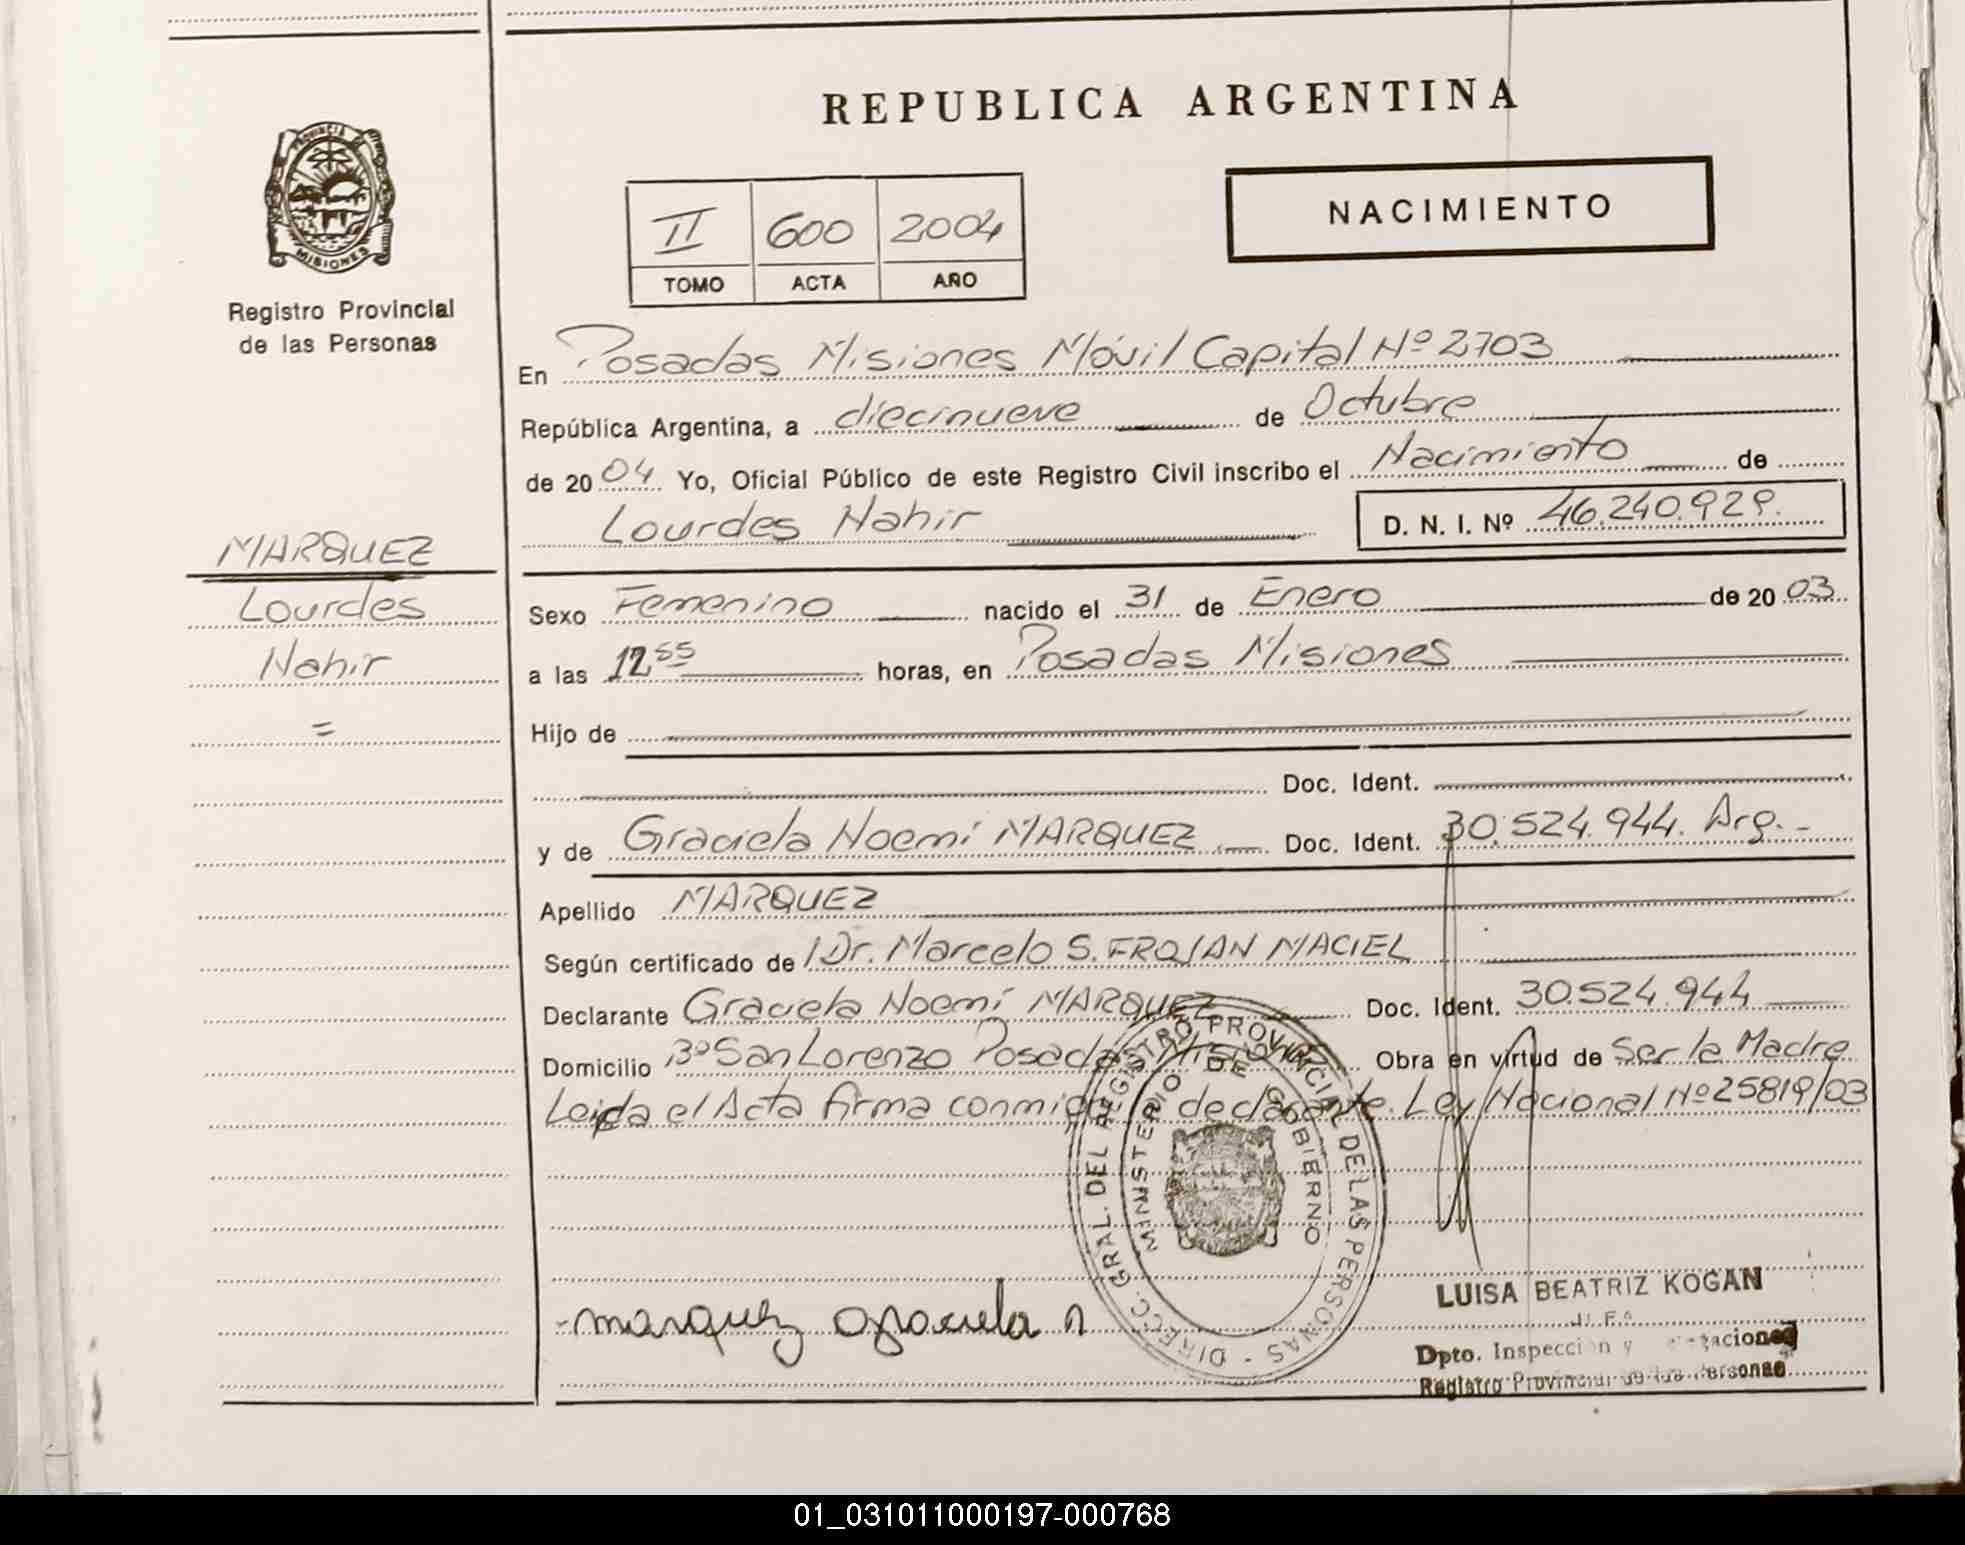 REPUBLICA ARGENTINA
PROVINCIA
MISIONES
Registro Provincial
de las Personas
II 600 2004
TOMO ACTA AÑO
NACIMIENTO
En Posadas Misiones Móvil Capital Nº 2703
República Argentina, a diecinueve de Octubre
de 2004 Yo, Oficial Público de este Registro Civil inscribo el Nacimiento de
Lourdes Nahir D. N. I. Nº 46.240.929.
MARQUEZ
Lourdes
Nahir
=
Sexo Femenino nacido el 31 de Enero de 2003
a las 12 55 horas, en Posadas Misiones
Hijo de
Doc. Ident.
y de Graciela Noemí MARQUEZ Doc. Ident. 30.524.944. Arg.-
Apellido MARQUEZ
Según certificado de Dr. Marcelo S. FROJAN MACIEL
Declarante Graciela Noemí MARQUEZ Doc. Ident. 30.524.944
Domicilio Bº San Lorenzo Posadas Misiones Obra en virtud de Ser la Madre
Leida el Acta firma conmigo la declarante. Ley Nacional Nº 25819/03
DIRECC. GRAL. DEL REGISTRO PROVINCIAL DE LAS PERSONAS -
MINISTERIO DE GOBIERNO
marquez graciela n
LUISA BEATRIZ KOGAN
Dpto. Inspección y
Registro Provincial de las Personas
01_031011000197-000768